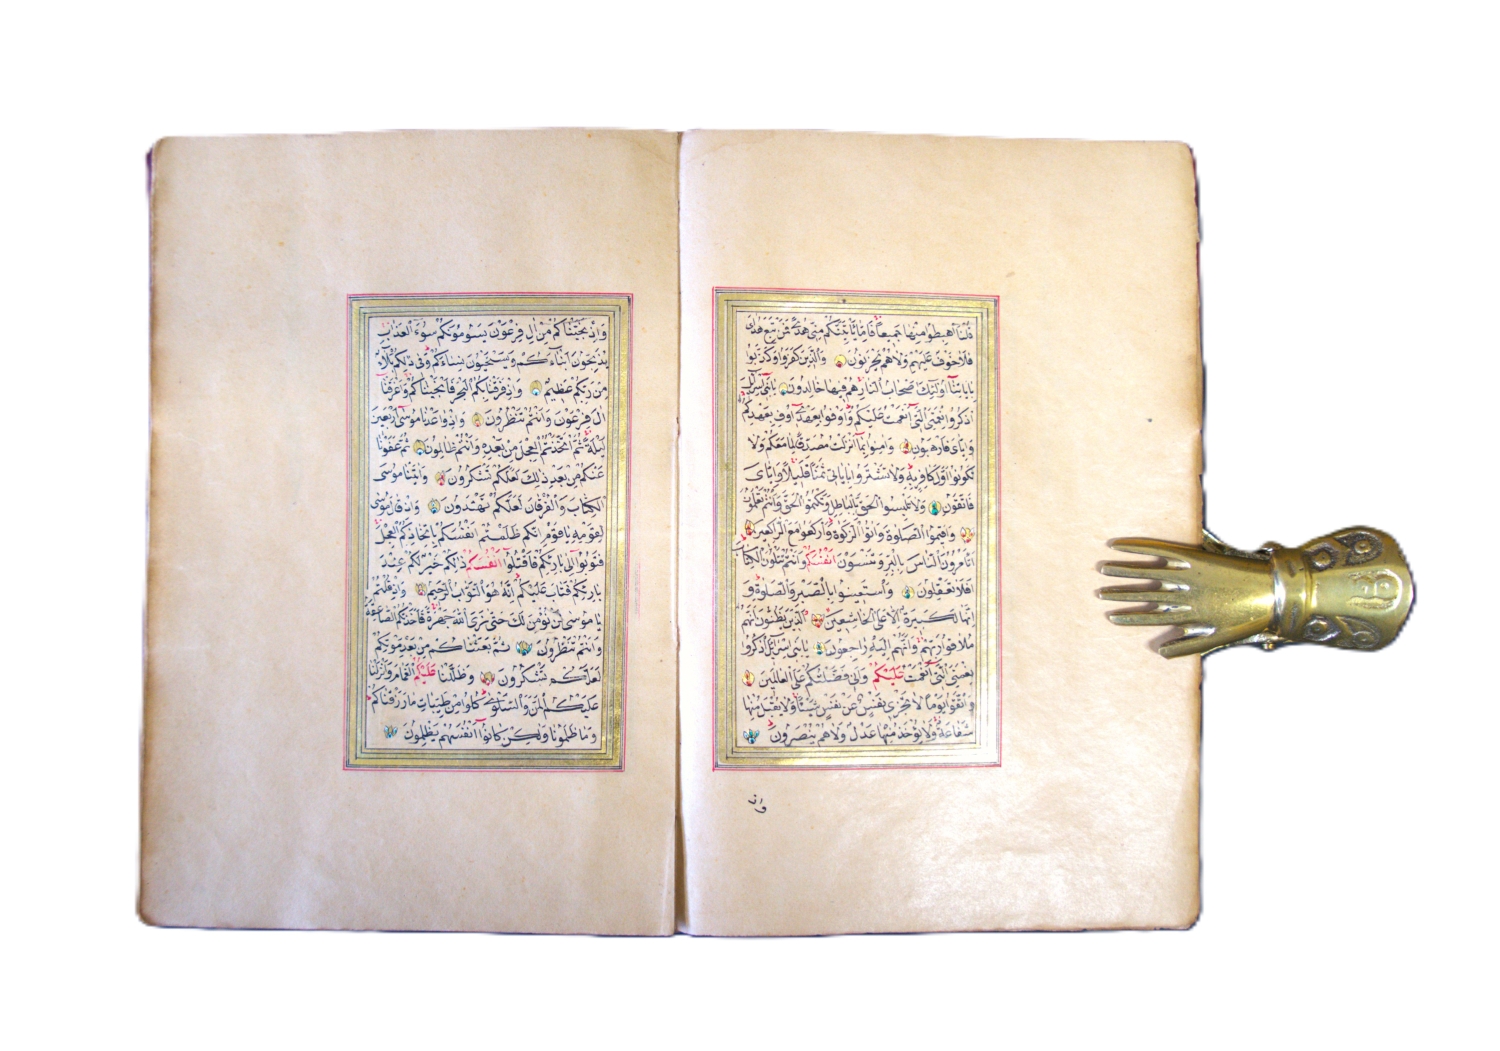 قلنا اهبطوا منها جميعا فاما ياتينكم مني هدى فمن تبع هداي
فلا خوف عليهم ولا هم يحزنون والذين كفروا وكذبوا
باياتنا اولئك اصحاب النار هم فيها خالدون يا بني اسرائيل
اذكروا نعمتي التي انعمت عليكم واوفوا بعهدي اوف بعهدكم
واياي فارهبون وامنوا بما انزلت مصدقا لما معكم ولا
تكونوا اول كافر به ولا تشتروا باياتي ثمنا قليلا واياي
فاتقون ولا تلبسوا الحق بالباطل وتكتموا الحق وانتم تعلمون
واقيموا الصلوة واتوا الزكوة واركعوا مع الراكعين
اتامرون الناس بالبر وتنسون انفسكم وانتم تتلون الكتاب
افلا تعقلون واستعينوا بالصبر والصلوة و
انها لكبيرة الا على الخاشعين الذين يظنون انهم
ملاقوا ربهم وانهم اليه راجعون يا بني اسرائيل اذكروا
نعمتي التي انعمت عليكم واني فضلتكم على العالمين
واتقوا يوما لا تجزي نفس عن نفس شيئا ولا يقبل منها
شفاعة ولا يؤخذ منها عدل ولا هم ينصرون
واذ
واذ نجيناكم من ال فرعون يسومونكم سوء العذاب
يذبحون ابناءكم ويستحيون نساءكم وفي ذلكم بلاء
من ربكم عظيم واذ فرقنا بكم البحر فانجيناكم واغرقنا
ال فرعون وانتم تنظرون واذ واعدنا موسى اربعين
ليلة ثم اتخذتم العجل من بعده وانتم ظالمون ثم عفونا
عنكم من بعد ذلك لعلكم تشكرون واذ اتينا موسى
الكتاب والفرقان لعلكم تهتدون واذ قال موسى
لقومه يا قوم انكم ظلمتم انفسكم باتخاذكم العجل
فتوبوا الى بارئكم فاقتلوا انفسكم ذلكم خير لكم عند
بارئكم فتاب عليكم انه هو التواب الرحيم واذ قلتم
يا موسى لن نؤمن لك حتى نرى الله جهرة فاخذتكم الصاعقة
وانتم تنظرون ثم بعثناكم من بعد موتكم
لعلكم تشكرون وظللنا عليكم الغمام وانزلنا
عليكم المن والسلوى كلوا من طيبات ما رزقناكم
وما ظلمونا ولكن كانوا انفسهم يظلمون